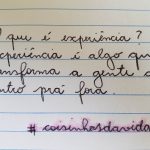 que é experiência?
xperiência é algo qu
ansforma a gente d
ntro pra fora.
#coisinhasdavida